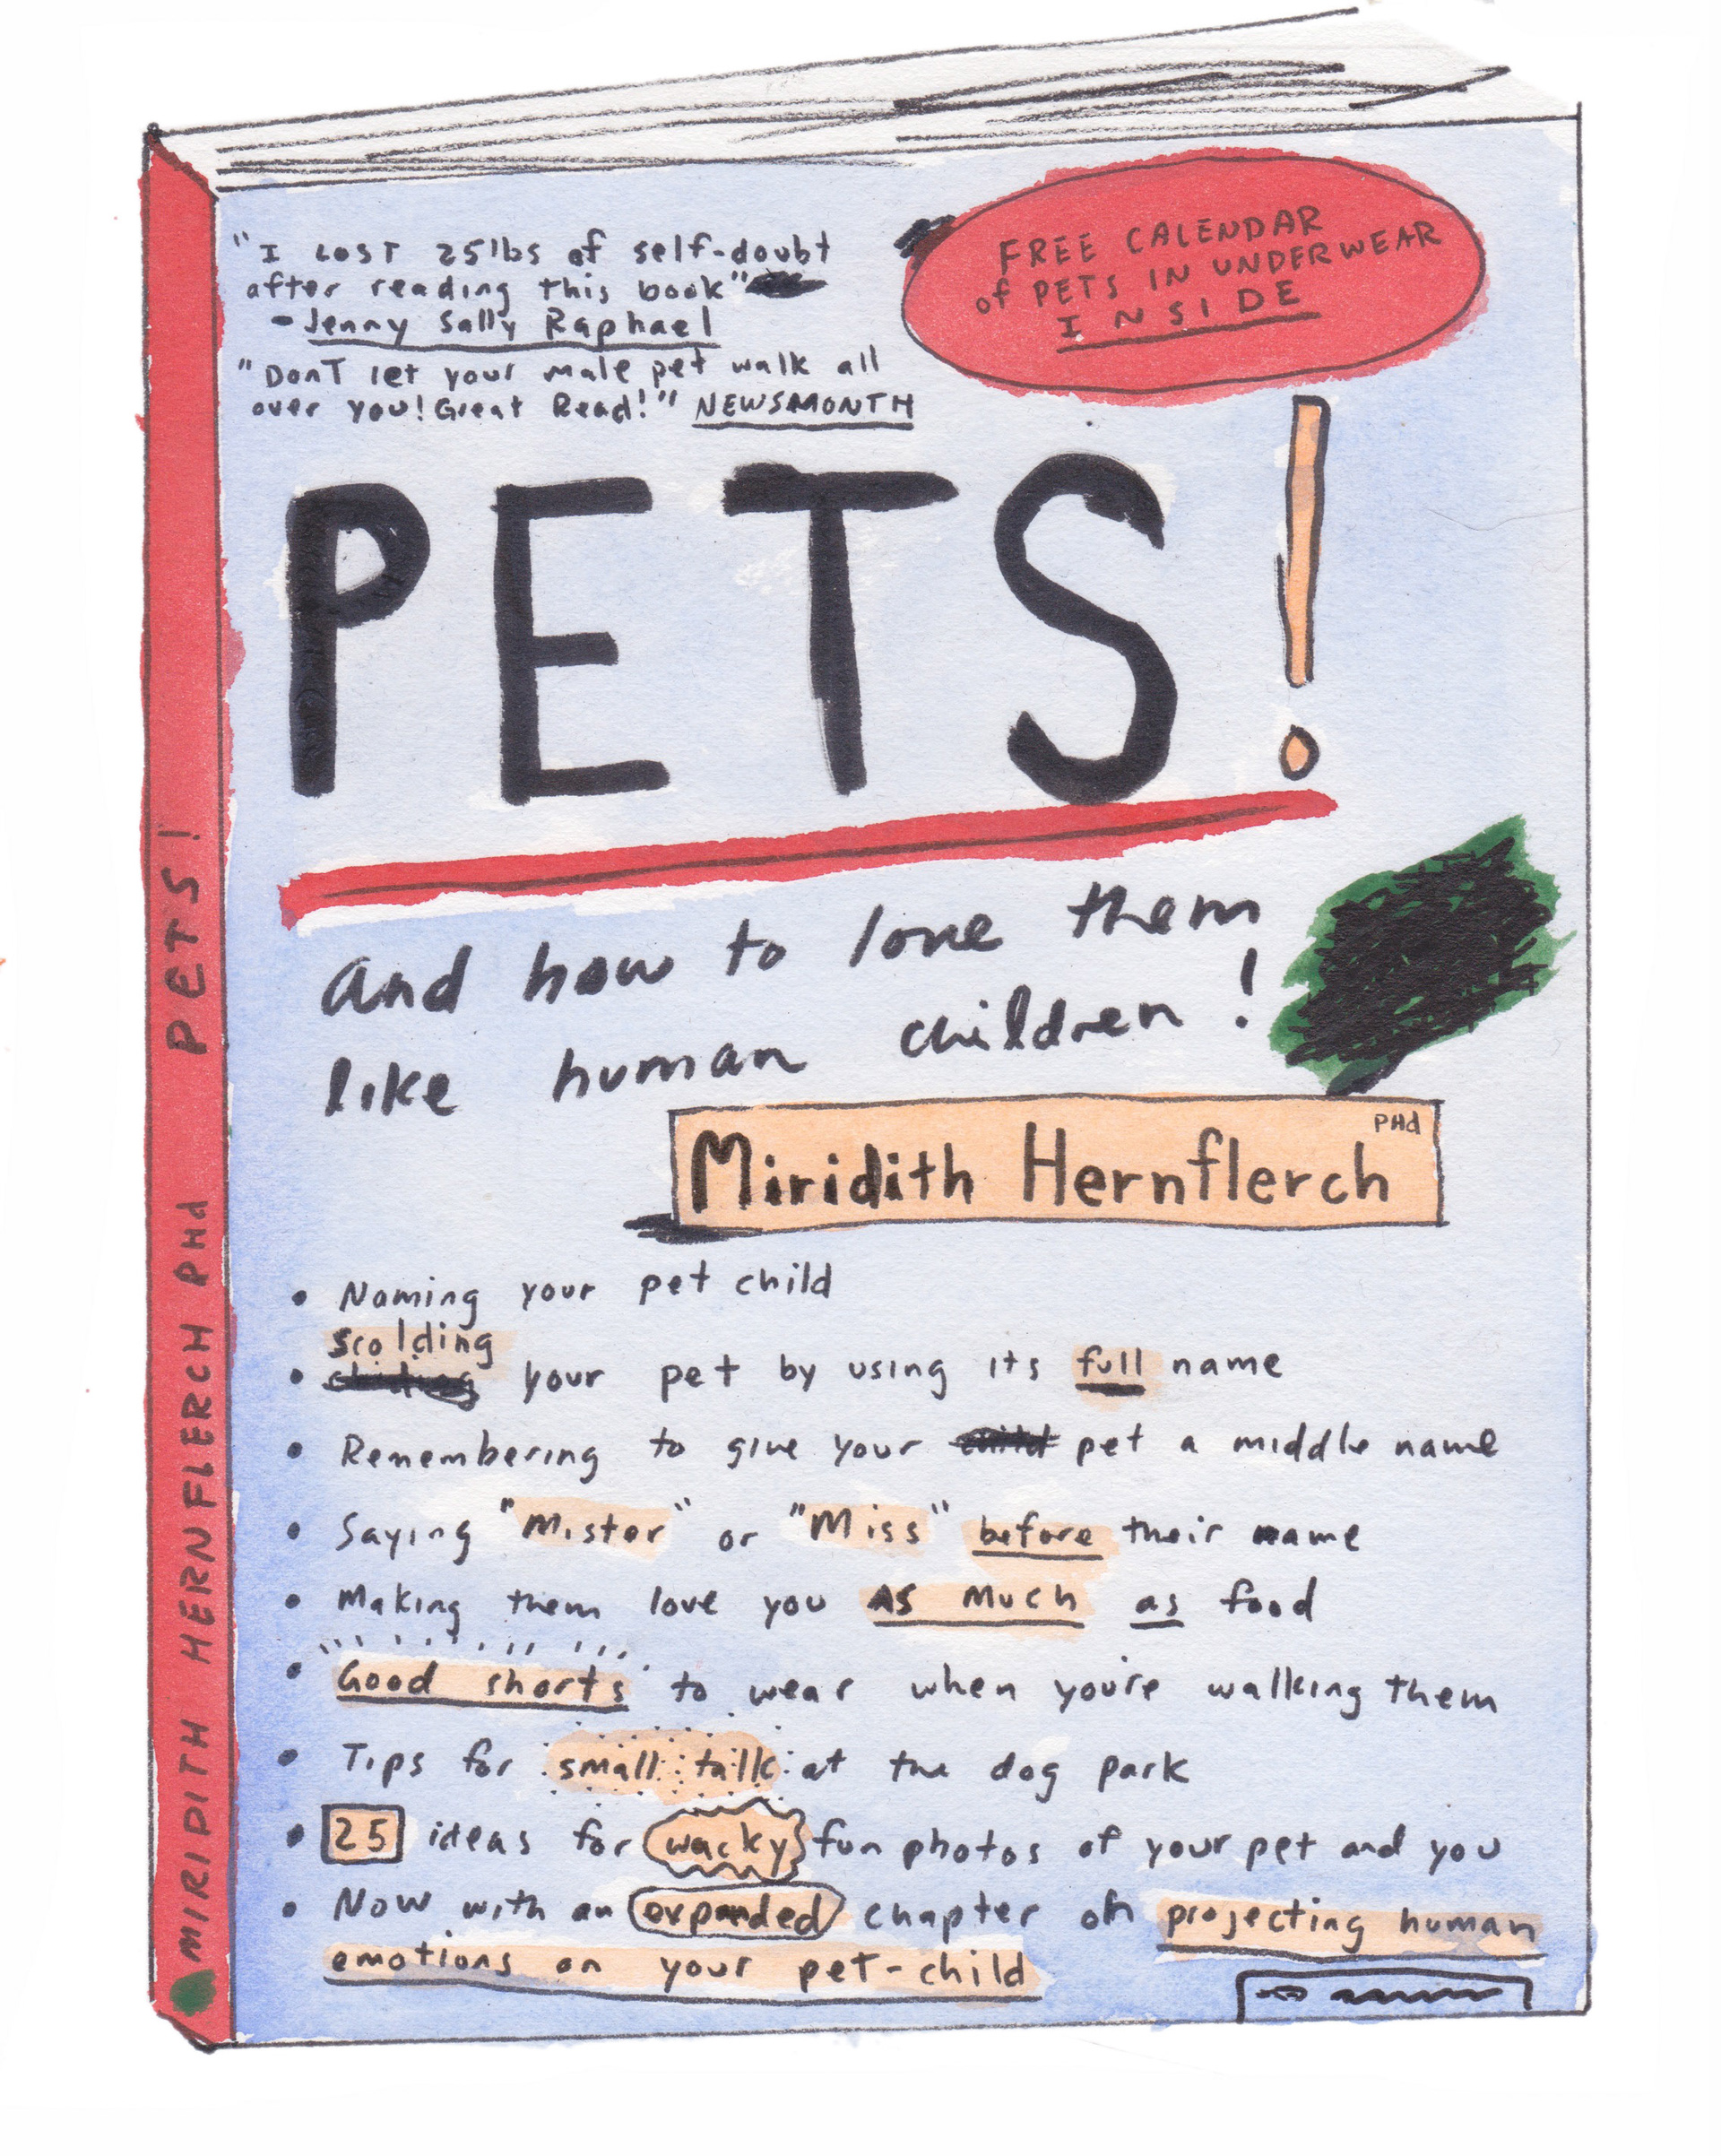 "I LOST 25lbs of self-doubt
after reading this book"
- Jenny Sally Raphael
"DonT let your male pet walk all
over you! Great Read!" NEWSMONTH
FREE CALENDAR
of PETS IN UNDERWEAR
INSIDE
PETS!
and how to love them
like human children!
PHd
Miridith Hernflerch
• Naming your pet child
scolding
• your pet by using its full name
• Remembering to give your pet a middle name
• Saying "Mister" or "Miss" before their name
• Making them love you AS MUCH as food
• Good shorts to wear when you're walking them
• Tips for small talk at the dog park
• 25 ideas for wacky fun photos of your pet and you
• Now with an expanded chapter on projecting human
emotions on your pet-child
MIRIDITH HERNFLERCH PHd PETS!